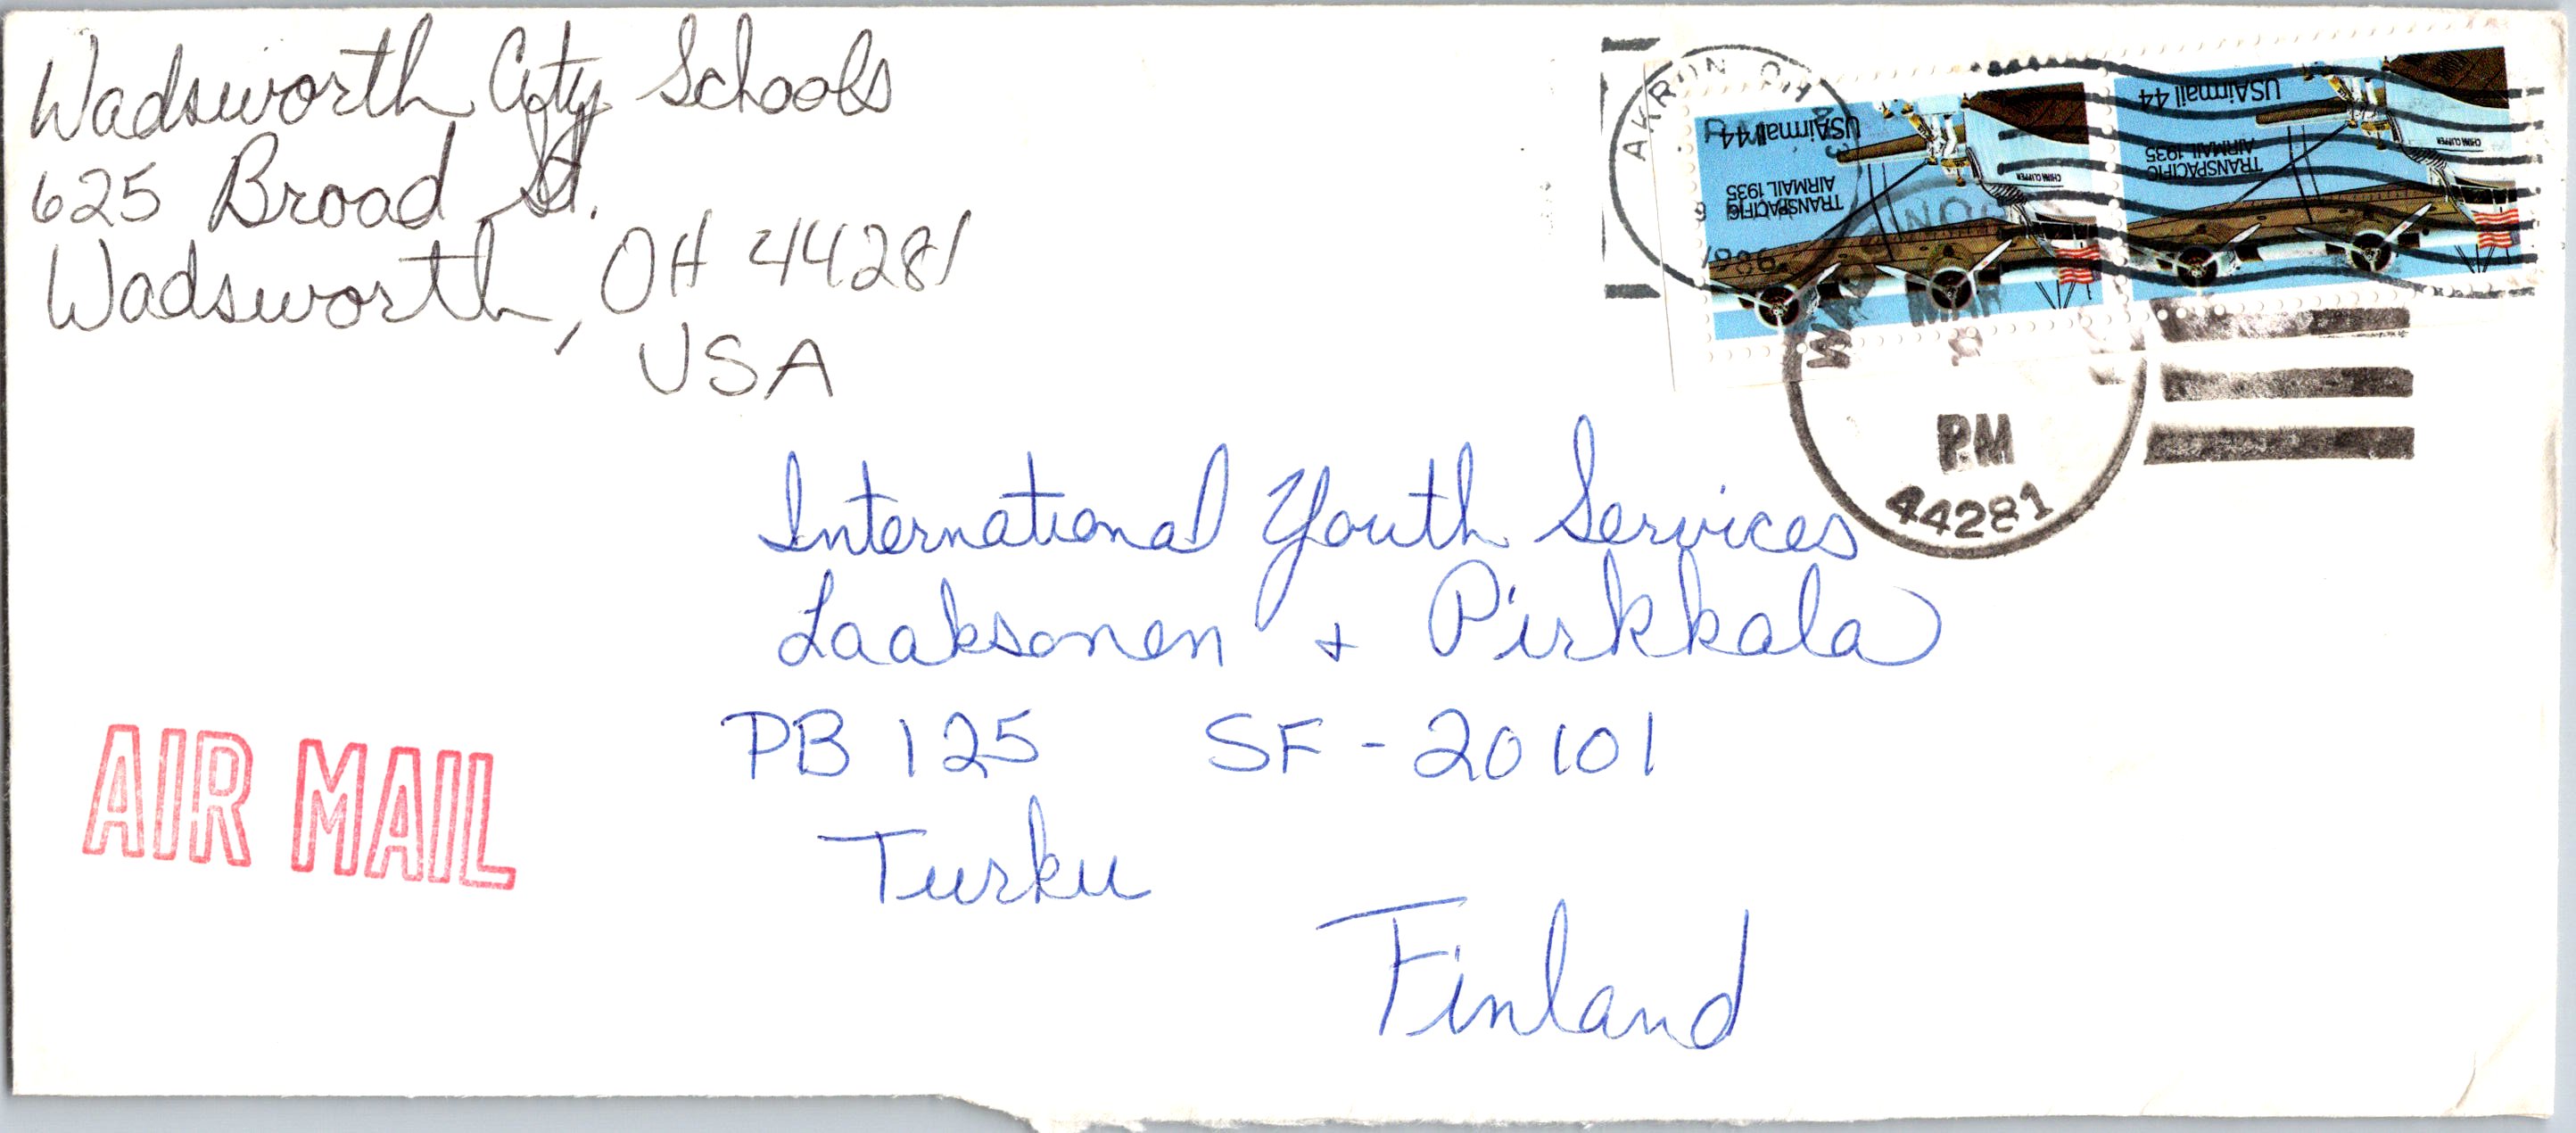 Wadsworth City Schools
625 Broad St.
Wadsworth, OH 44281
USA
AKRON OH 443
PM
1986
USAirmail 44
TRANSPACIFIC
AIRMAIL 1935
CHINA CLIPPER
USAirmail 44
TRANSPACIFIC
AIRMAIL 1935
CHINA CLIPPER
PM
44281
International Youth Services
Laaksonen + Pirkkala
PB 125 SF-20101
Turku
Finland
AIR MAIL